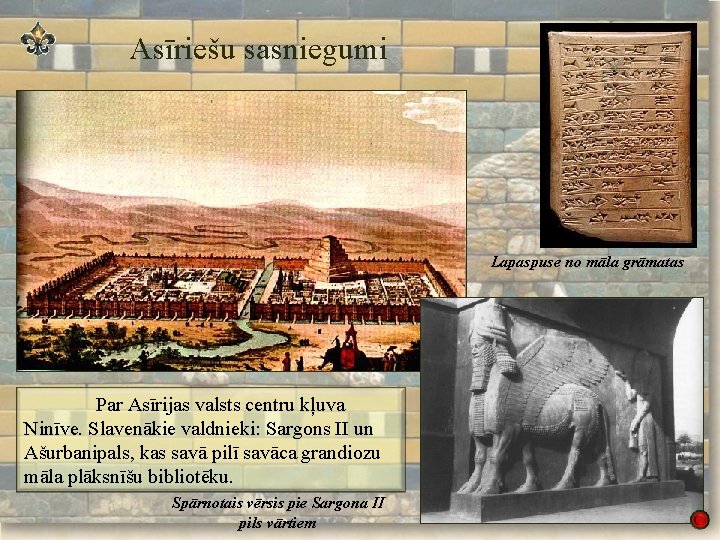 Asīriešu sasniegumi
Lapaspuse no māla grāmatas
Par Asīrijas valsts centru kļuva
Ninīve. Slavenākie valdnieki: Sargons II un
Ašurbanipals, kas savā pilī savāca grandiozu
māla plāksnīšu bibliotēku.
Spārnotais vērsis pie Sargona II
pils vārtiem